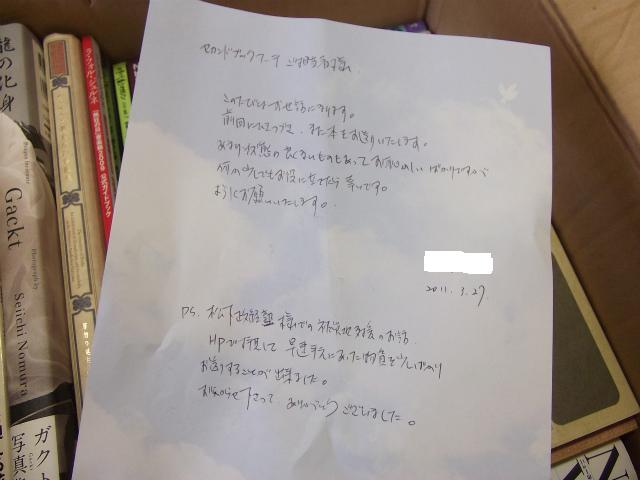 セカンドブックアーチ ご担当者様
このたびもお世話になります。
前回にひきつづき、また本をお送りいたします。
あまり状態の良くないものもあってお恥ずかしいばかりですが
何か少しでもお役に立てたら幸いです。
よろしくお願いいたします。
2011.3.27
PS. 松下政経塾様での被災地支援のお話
HPで拝見して早速手元にあった物資を少しばかり
お送りすることが出来ました。
お知らせ下さって ありがとうございました。
龍の化身
Gackt
Photographs by
Seiichi Nomura
ガクト
写真集
ラ・フォル・ジュルネ
公式ガイドブック